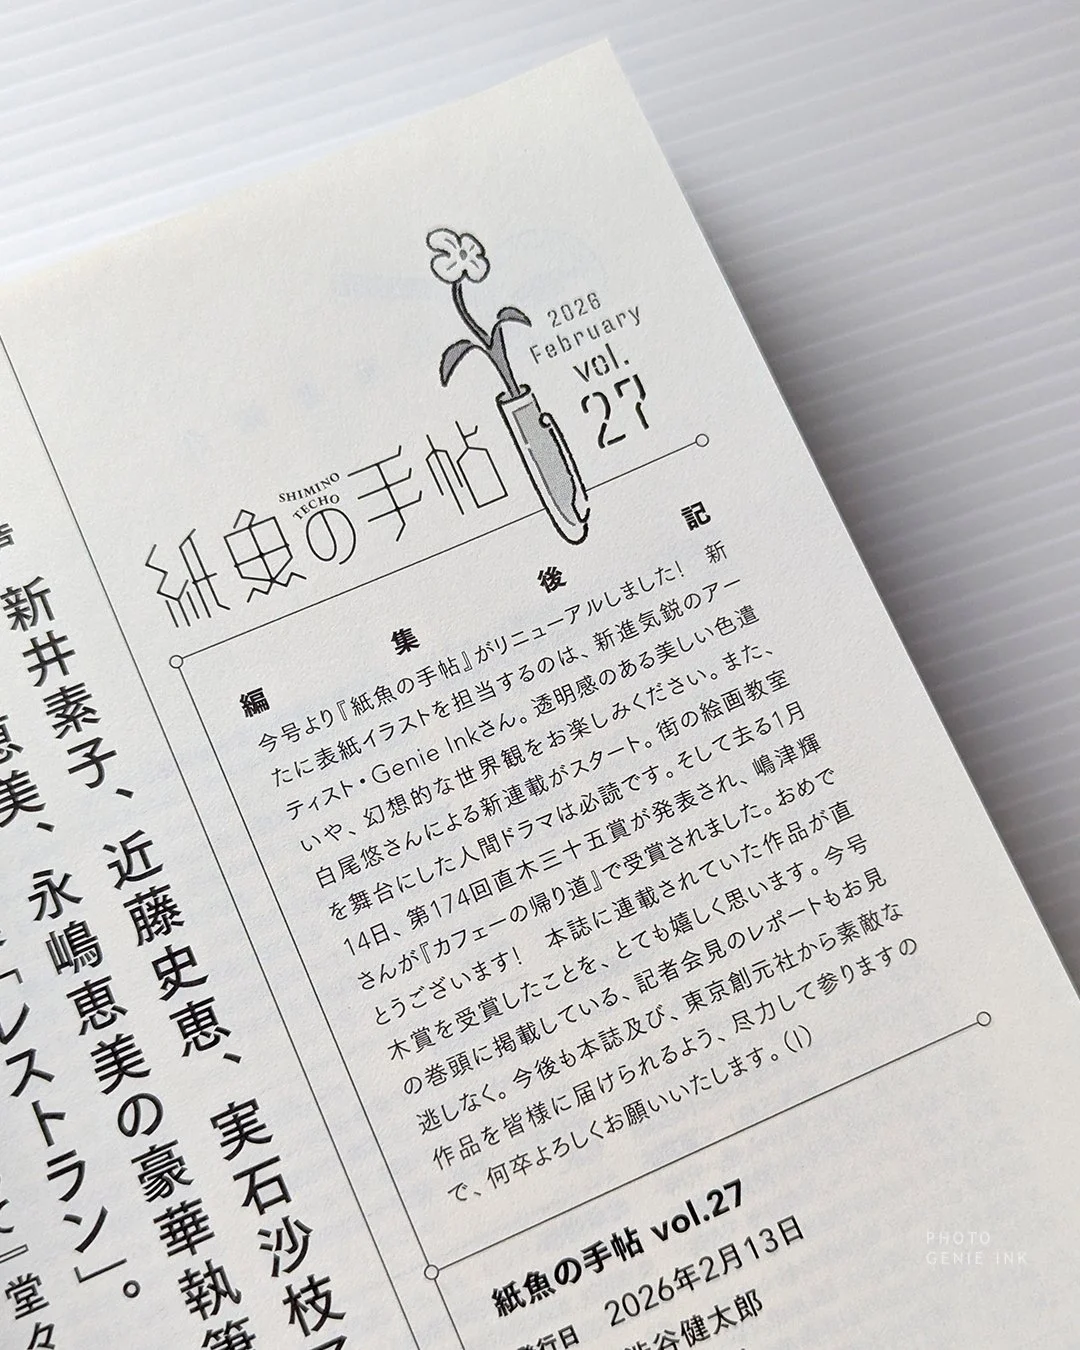 2026
February
vol.
27
紙魚の手帖
SHIMINO
TECHO
編集後記
今号より『紙魚の手帖』がリニューアルしました！　新
たに表紙イラストを担当するのは、新進気鋭のアー
ティスト・Genie Inkさん。透明感のある美しい色遣
いや、幻想的な世界観をお楽しみください。また、
白尾悠さんによる新連載がスタート。街の絵画教室
を舞台にした人間ドラマは必読です。そして去る1月
14日、第174回直木三十五賞が発表され、嶋津輝
さんが『カフェーの帰り道』で受賞されました。おめで
とうございます！　本誌に連載されていた作品が直
木賞を受賞したことを、とても嬉しく思います。今号
の巻頭に掲載している、記者会見のレポートもお見
逃しなく。今後も本誌及び、東京創元社から素敵な
作品を皆様に届けられるよう、尽力して参りますの
で、何卒よろしくお願いいたします。（I）
紙魚の手帖 vol.27
2026年2月13日
発行日
渋谷健太郎
新井素子、近藤史恵、実石沙枝
恵美、永嶋恵美の豪華執筆
「レストラン」。
』堂々
PHOTO
GENIE INK